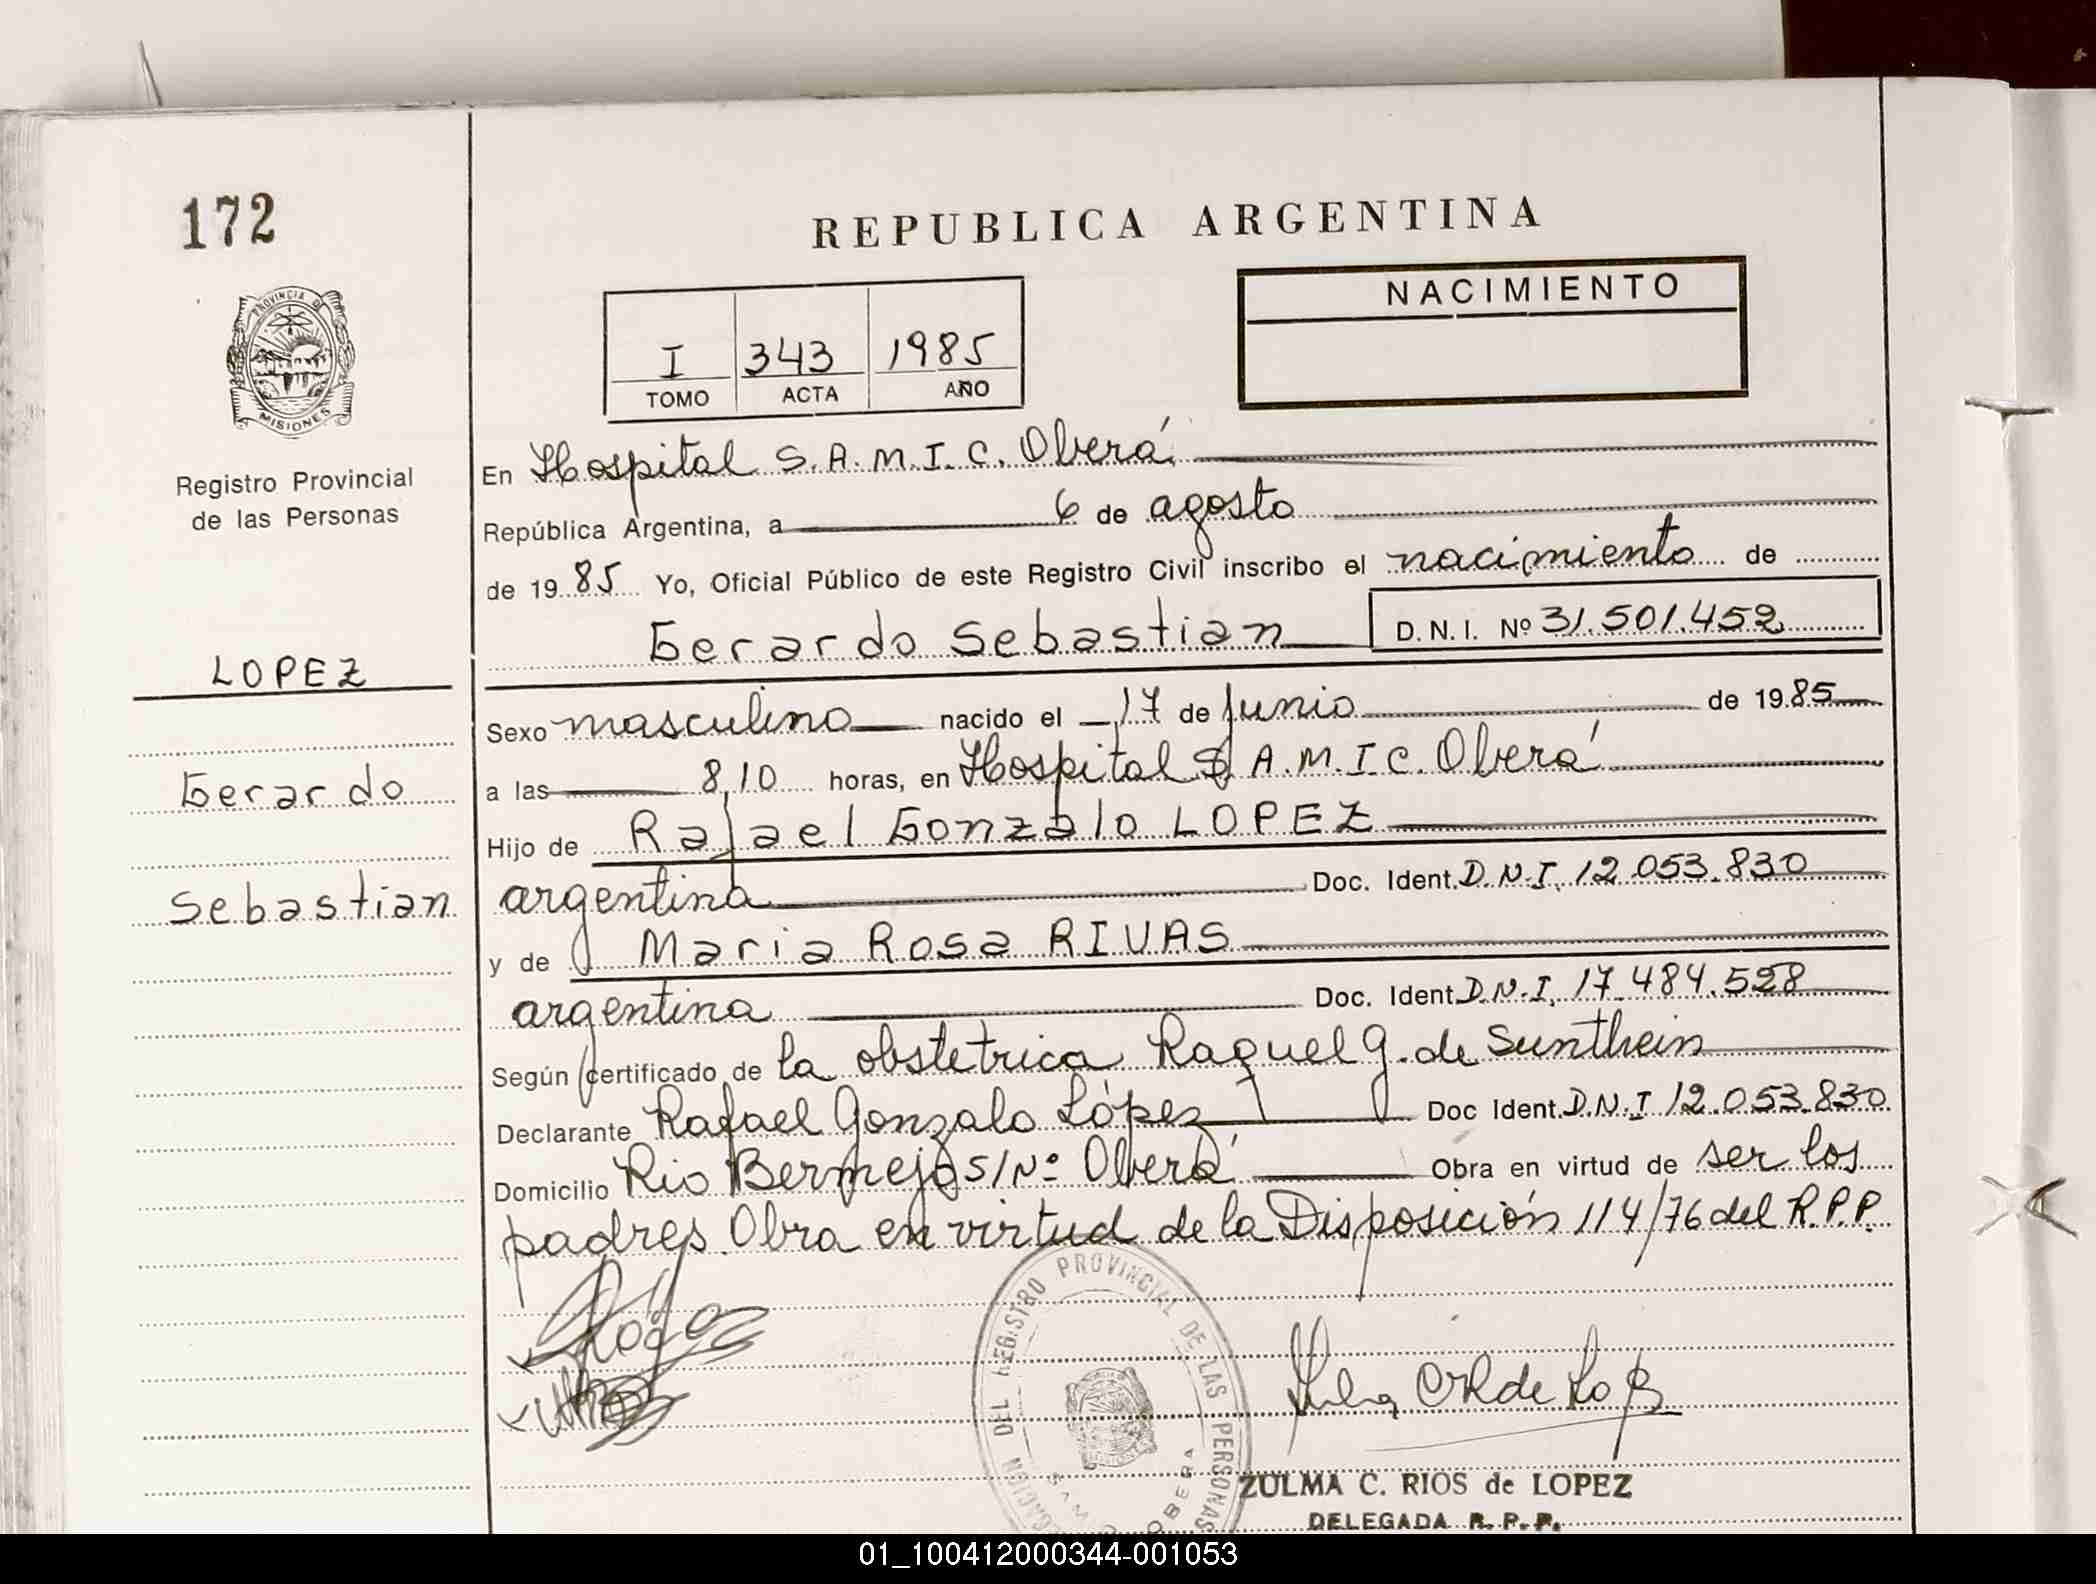 172
REPUBLICA ARGENTINA
NACIMIENTO
I 343 1985
TOMO ACTA AÑO
PROVINCIA DE
MISIONES
Registro Provincial
de las Personas
LOPEZ
Gerardo
Sebastian
En Hospital S.A.M.I.C. Oberá
República Argentina, a 6 de agosto
de 1985 Yo, Oficial Público de este Registro Civil inscribo el nacimiento de
Gerardo Sebastian D.N.I. Nº 31.501.452
Sexo masculino nacido el 17 de Junio de 1985
a las 8,10 horas, en Hospital S.A.M.I.C. Oberá
Hijo de Rafael Gonzalo LOPEZ
argentina Doc. Ident. D.N.I. 12.053.830
y de Maria Rosa RIVAS
argentina Doc. Ident. D.N.I. 17.484.528
Según certificado de la obstetrica Raquel G. de Sunthein
Declarante Rafael Gonzalo López Doc Ident. D.N.I 12.053.830
Domicilio Rio Bermejo S/Nº Oberá Obra en virtud de ser los
padres. Obra en virtud de la Disposición 114/76 del R.P.P.
DEL REGISTRO PROVINCIAL DE LAS PERSONAS
OBERA
ZULMA C. RIOS de LOPEZ
DELEGADA R. P. P.
01_100412000344-001053